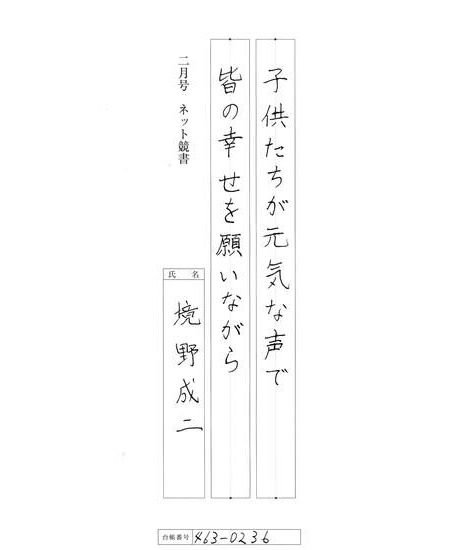 子供たちが元気な声で
皆の幸せを願いながら
二月号 ネット競書
氏名
境野成二
台帳番号 463-0236